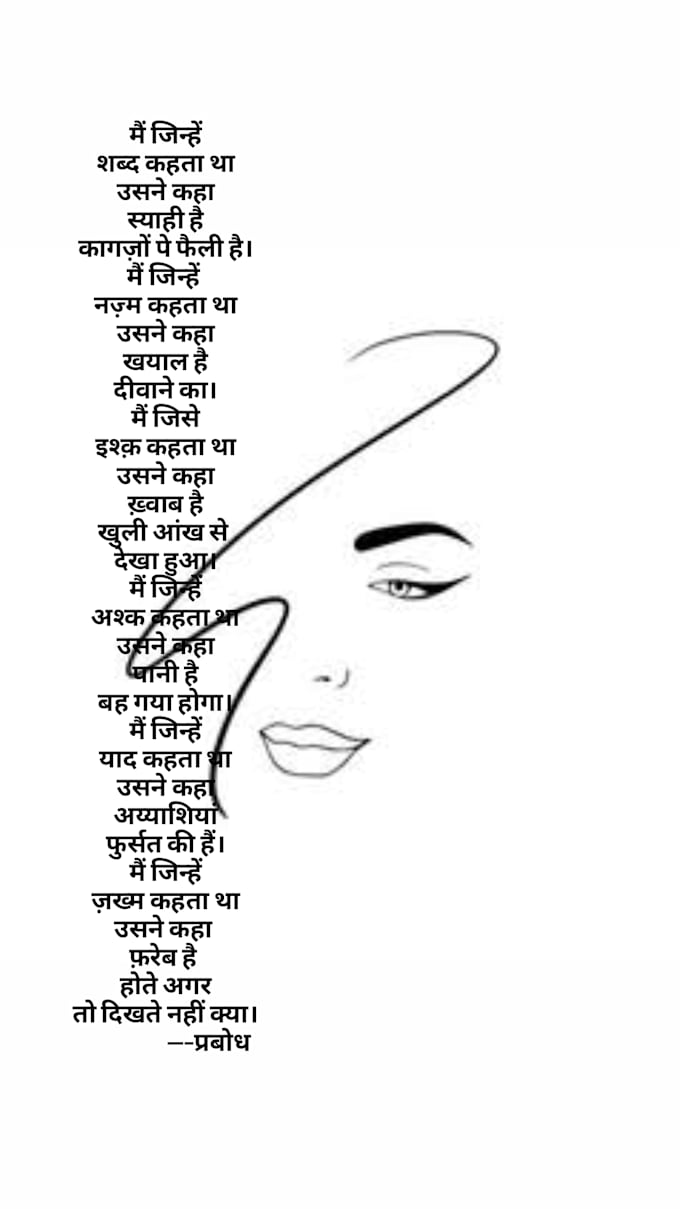 मैं जिन्हें
शब्द कहता था
उसने कहा
स्याही है
कागज़ों पे फैली है।
मैं जिन्हें
नज़्म कहता था
उसने कहा
खयाल है
दीवाने का।
मैं जिसे
इश्क़ कहता था
उसने कहा
ख़्वाब है
खुली आंख से
देखा हुआ।
मैं जिन्हें
अश्क कहता था
उसने कहा
पानी है
बह गया होगा।
मैं जिन्हें
याद कहता था
उसने कहा
अय्याशियां
फुर्सत की हैं।
मैं जिन्हें
ज़ख्म कहता था
उसने कहा
फ़रेब है
होते अगर
तो दिखते नहीं क्या।
—-प्रबोध